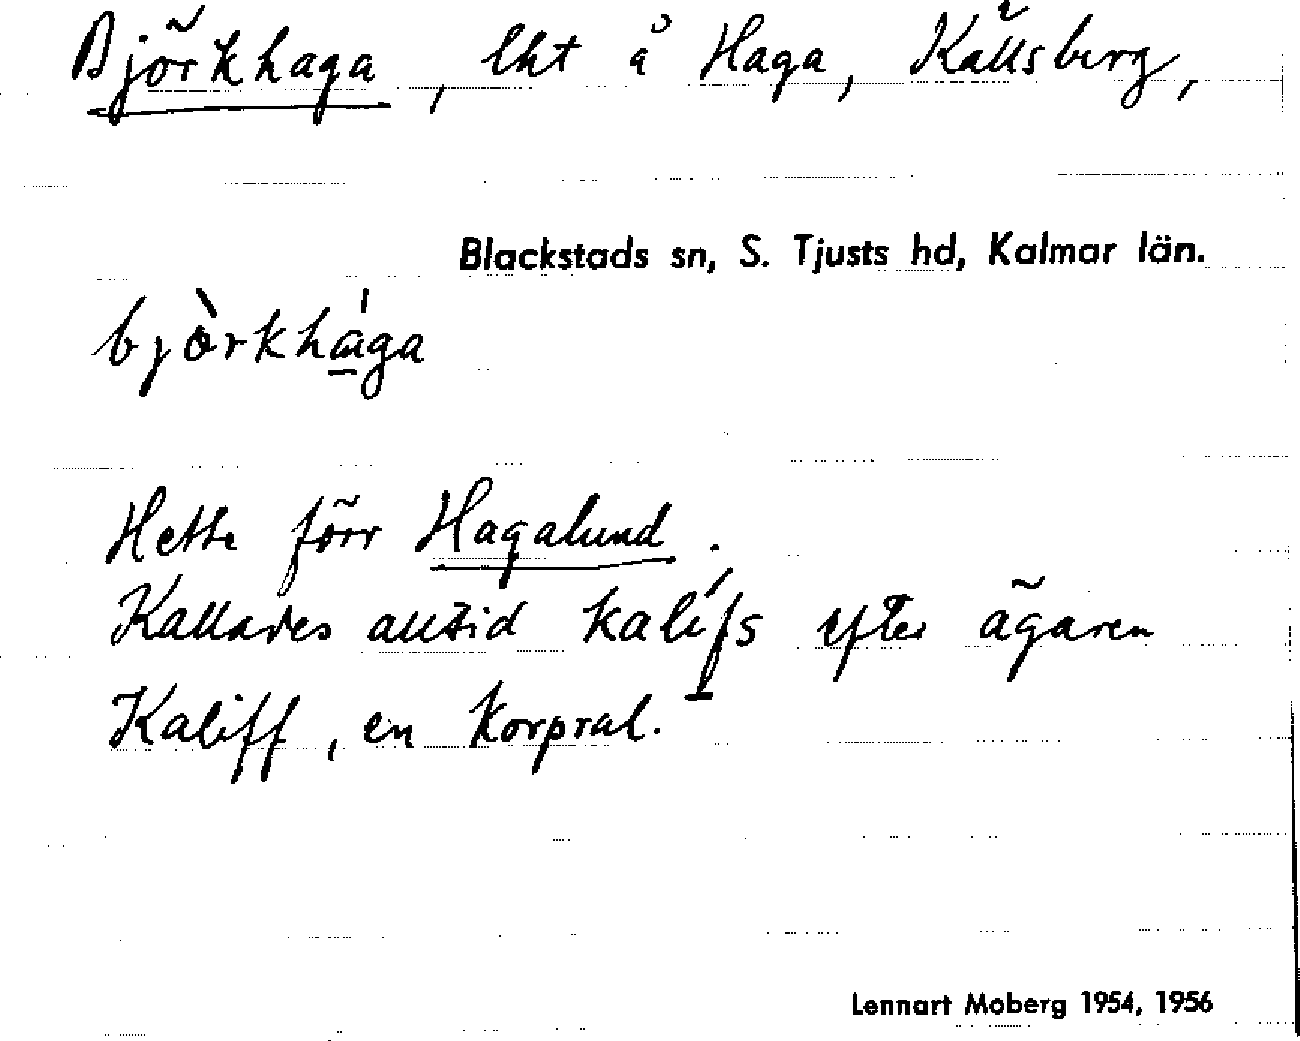 Björkhaga, lht å Haga, Källsberg,
Blackstads sn, S. Tjusts hd, Kalmar län.
bjòrkhága
Hette förr Hagalund.
Kallades alltid kalífs efter ägaren
Kaliff, en korpral.
Lennart Moberg 1954, 1956